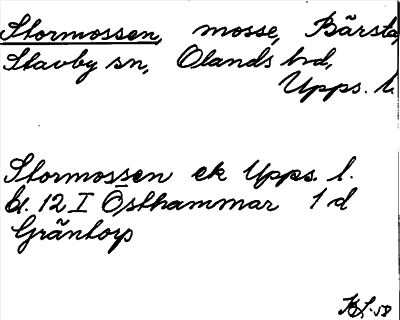 Stormossen, mosse, Bärsta,
Stavby sn, Olands hd,
Upps. l.
Stormossen ek Upps. l.
bl. 12 I Östhammar 1 d
Gräntorp